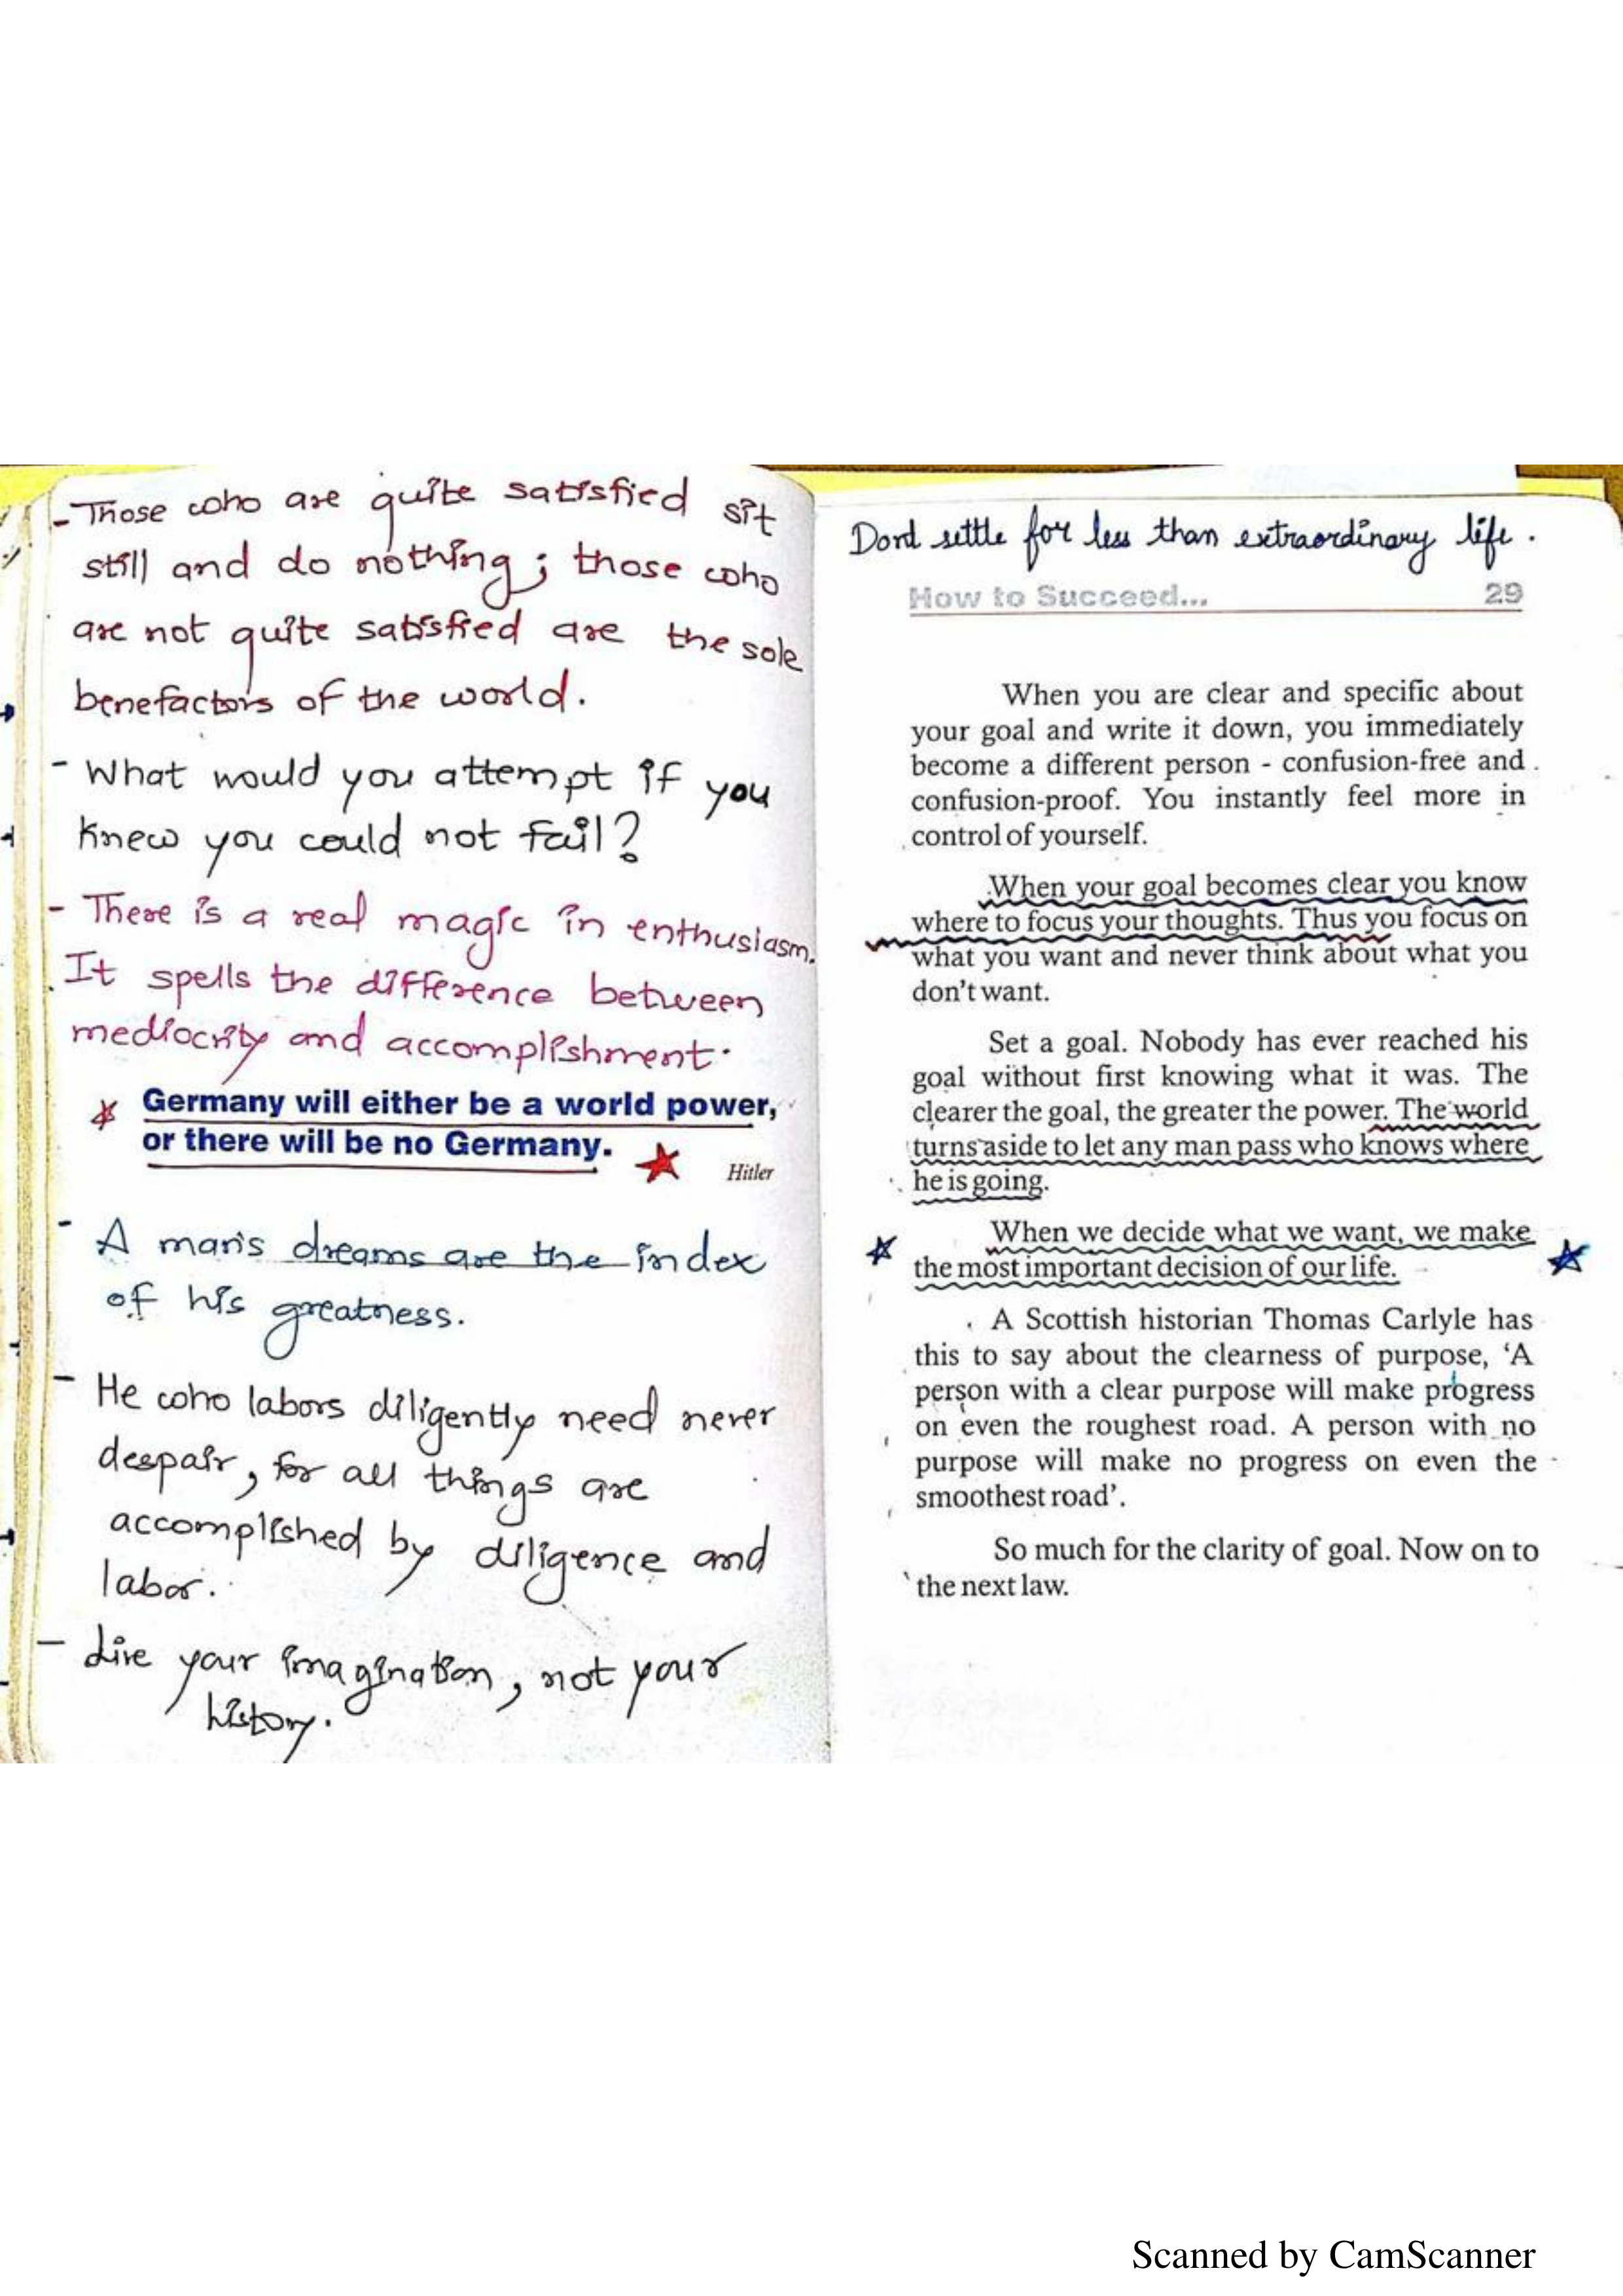 - Those who are quite satisfied sit
still and do nothing; those who
are not quite satisfied are the sole
benefactors of the world.
- What would you attempt if you
knew you could not fail?
- There is a real magic in enthusiasm.
It spells the difference between
mediocrity and accomplishment.
Germany will either be a world power,
or there will be no Germany.
Hitler
- A man's dreams are the index
of his greatness.
- He who labors diligently need never
despair, for all things are
accomplished by diligence and
labor.
- Live your imagination, not your
history.
Dont settle for less than extraordinary life.
How to Succeed... 29
When you are clear and specific about
your goal and write it down, you immediately
become a different person - confusion-free and
confusion-proof. You instantly feel more in
control of yourself.
When your goal becomes clear you know
where to focus your thoughts. Thus you focus on
what you want and never think about what you
don't want.
Set a goal. Nobody has ever reached his
goal without first knowing what it was. The
clearer the goal, the greater the power. The world
turns aside to let any man pass who knows where
he is going.
When we decide what we want, we make
the most important decision of our life.
A Scottish historian Thomas Carlyle has
this to say about the clearness of purpose, 'A
person with a clear purpose will make progress
on even the roughest road. A person with no
purpose will make no progress on even the
smoothest road'.
So much for the clarity of goal. Now on to
the next law.
Scanned by CamScanner